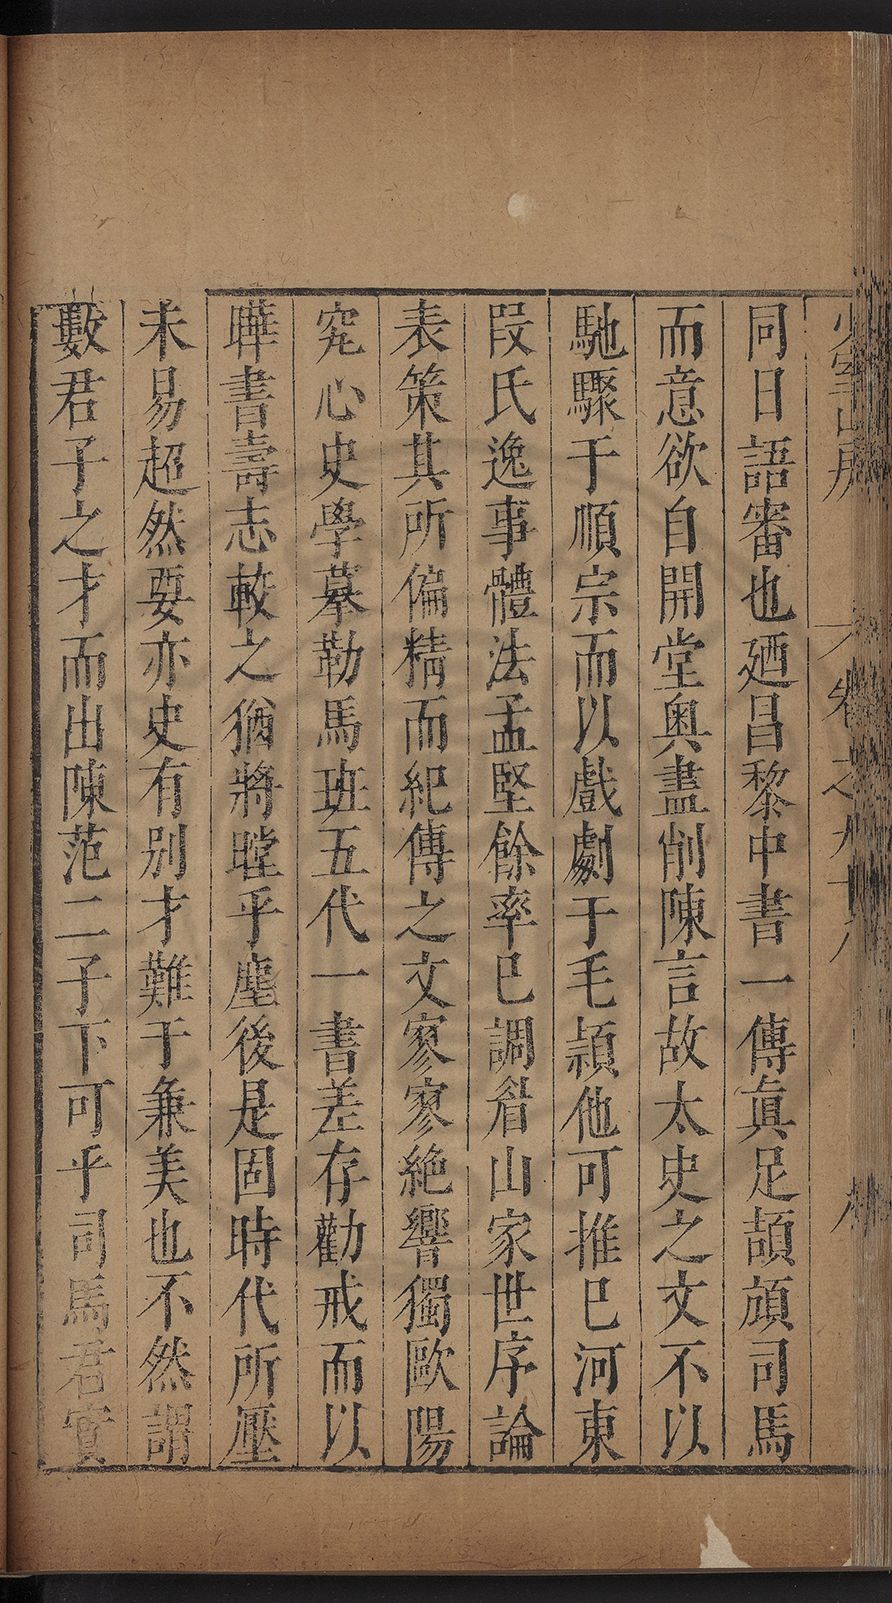 少室山房 卷之九十八
同日語審也廼昌黎中書一傳真足頡頏司馬
而意欲自開堂奥盡削陳言故太史之文不以
馳驟于順宗而以戲劇于毛頴他可推巳河東
叚氏逸事體法孟堅餘率巳調眉山家世序論
表策其所偏精而紀傳之文寥寥絶響獨歐陽
究心史學摹勒馬班五代一書差存勸戒而以
曄書壽志較之猶將瞠乎塵後是固時代所壓
未易超然要亦史有别才難于兼美也不然謂
數君子之才而出陳范二子下可乎司馬君實